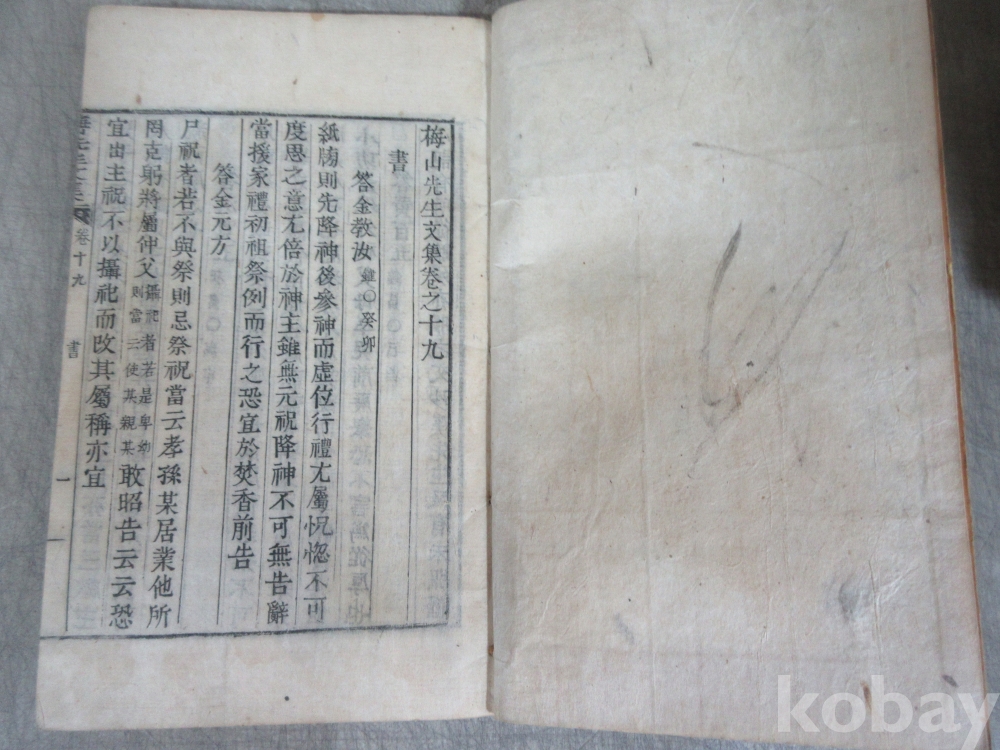 梅山先生文集卷之十九
書
答金教汝 癸卯
紙牓則先降神後參神而虛位行禮尤屬怳惚不可
度思之意尤倍於神主雖無元祝降神不可無告辭
當援家禮初祖祭例而行之恐宜於焚香前告
答金元方
尸祝者若不與祭則忌祭祝當云孝孫某居業他所
罔克躬將屬仲父攝祀者若是卑幼則當云使某親某敢昭告云云恐
宜出主祝不以攝祀而改其屬稱亦宜
卷十九
書
一
kobay